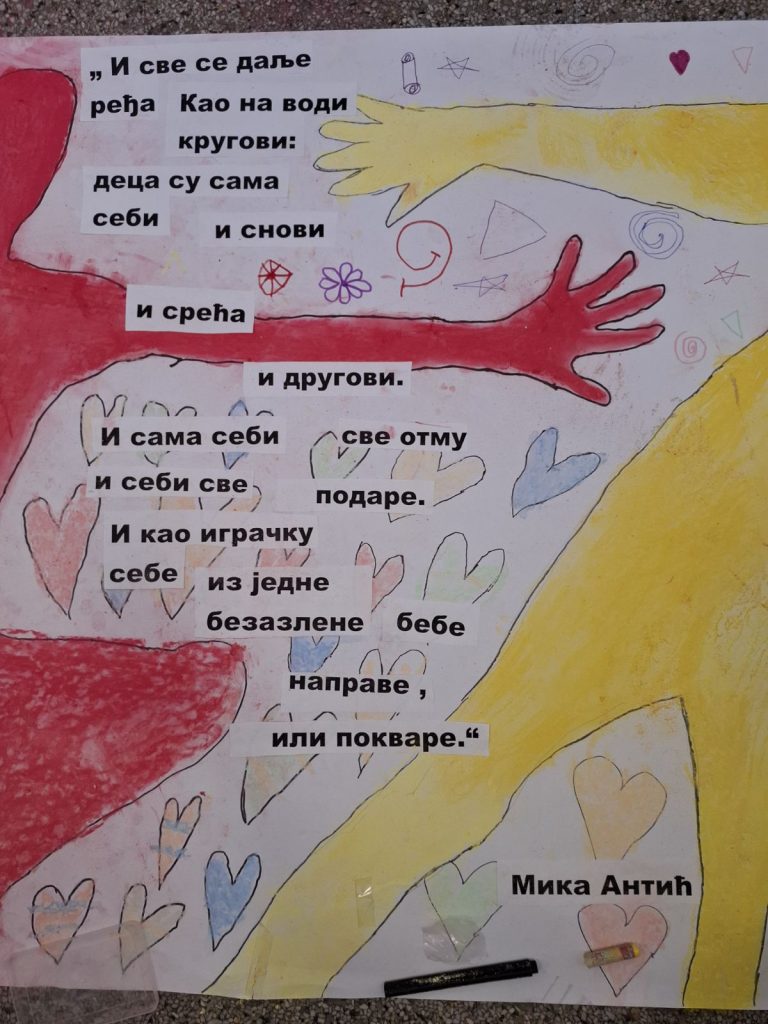 „ И све се даље
ређа Као на води
кругови:
деца су сама
себи и снови
и срећа
и другови.
И сама себи све отму
и себи све подаре.
И као играчку
себе из једне
безазлене бебе
направе ,
или покваре.“
Мика Антић